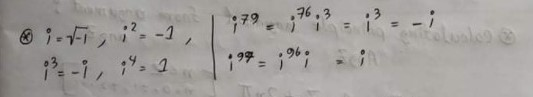 ⊛ i = √-i , i² = -1 ,
i³ = -i , i⁴ = 1
i⁷⁹ = i⁷⁶ i³ = i³ = -i
i⁹⁷ = i⁹⁶ i = i